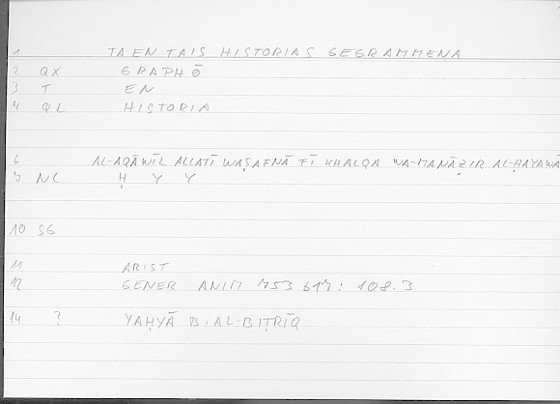 1 TA EN TAIS HISTORIAS GEGRAMMENA
2 QX GRAPHŌ
3 T EN
4 QL HISTORIA
6 AL-AQĀWĪL ALLATĪ WAṢAFNĀ FĪ KHALQA WA-MANĀẒIR AL-ḤAYAWĀ
7 NL Ḥ Y Y
10 SG
11 ARIST
12 GENER ANIM 753 b17: 108.3
14 ? YAḤYĀ B. AL-BIṬRĪQ